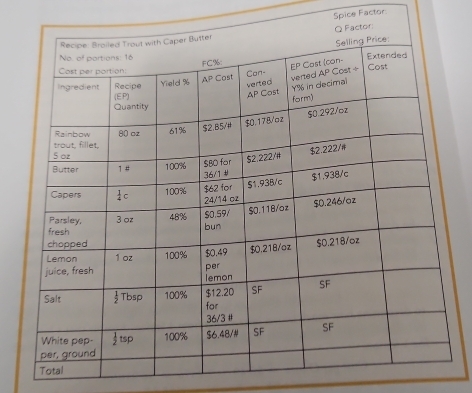 Spice Factor:
Recipe: Broiled Trout with Caper Butter Q Factor:
No. of portions: 16 FC%: Selling Price:
Cost per portion:
Ingredient Recipe (EP) Quantity Yield % AP Cost Converted AP Cost EP Cost (converted AP Cost ÷ Y% in decimal form) Extended Cost
Rainbow trout, fillet, 5 oz 80 oz 61% $2.85/# $0.178/oz $0.292/oz
Butter 1 # 100% $80 for 36/1 # $2.222/# $2.222/#
Capers ¼ c 100% $62 for 24/14 oz $1.938/c $1.938/c
Parsley, fresh chopped 3 oz 48% $0.59/ bun $0.118/oz $0.246/oz
Lemon juice, fresh 1 oz 100% $0.49 per lemon $0.218/oz $0.218/oz
Salt ½ Tbsp 100% $12.20 for 36/3 # SF SF
White pepper, ground ½ tsp 100% $6.48/# SF SF
Total